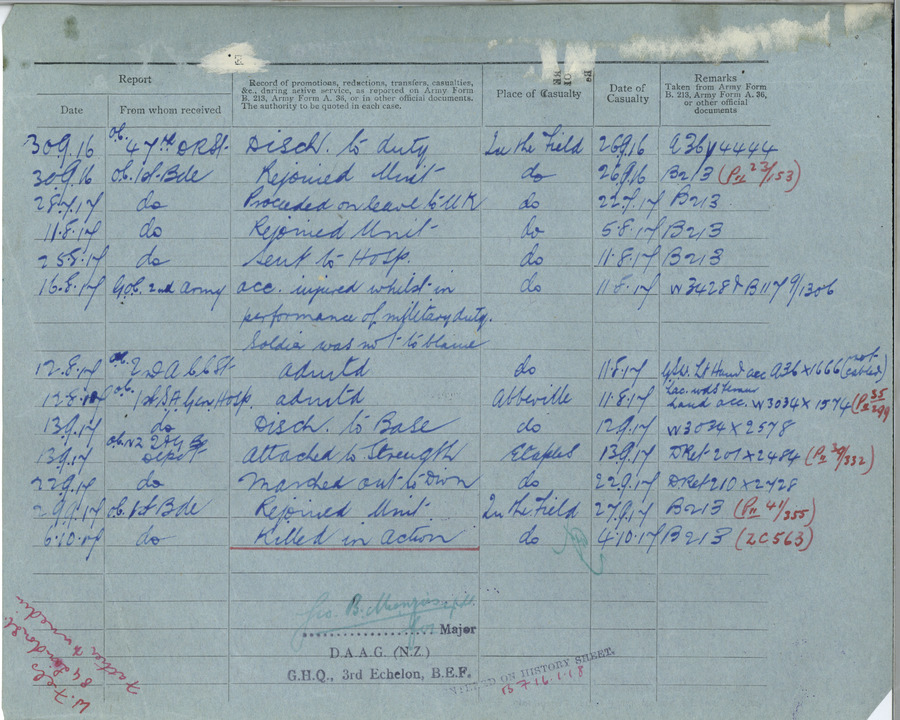 Report
Record of promotions, reductions, transfers, casualties,
&c., during active service, as reported on Army Form
B. 213, Army Form A. 36, or in other official documents.
The authority to be quoted in each case.
Place of Casualty
Date of
Casualty
Remarks
Taken from Army Form
B. 213, Army Form A. 36,
or other official
documents
Date From whom received
30.9.16 Disch. to duty In the Field 26.9.16 A36 4444
30.9.16 1st Bde Rejoined Unit do 26.9.16 B213 (Pn 23/153)
28.7.17 do Proceeded on leave to UK do 22.7.17 B213
11.8.17 do Rejoined Unit do 5.8.17 B213
25.8.17 do Sent to Hosp. do 11.8.17 B213
16.8.17 2nd Army acc. injured whilst in do 11.8.17 W3428 B117 9/1306
performance of military duty.
Soldier was not to blame
12.8.17 admtd do 11.8.17 GSW. Lt Hand acc A36 x 1666 (not cabled)
12.8.17 1st S.A. Gen. Hosp. admtd Abbeville 11.8.17 Lac. wds hand acc. W3034 x 1574 (Pn 35/299)
13.9.17 do Disch. to Base do 12.9.17 W3034 x 2578
13.9.17 Depot attached to Strength Etaples 13.9.17 D Ret 201 x 2484 (Pn 39/332)
22.9.17 do Marched out to Divn do 22.9.17 D Ret 210 x 2728
29.9.17 1st Bde Rejoined Unit In the Field 27.9.17 B213 (Pn 41/355)
6.10.17 do Killed in action do 4.10.17 B213 (ZC563)
Geo. B. Menzies
Major
D.A.A.G. (N.Z.)
G.H.Q., 3rd Echelon, B.E.F.
ENTERED ON HISTORY SHEET.
16.1.18